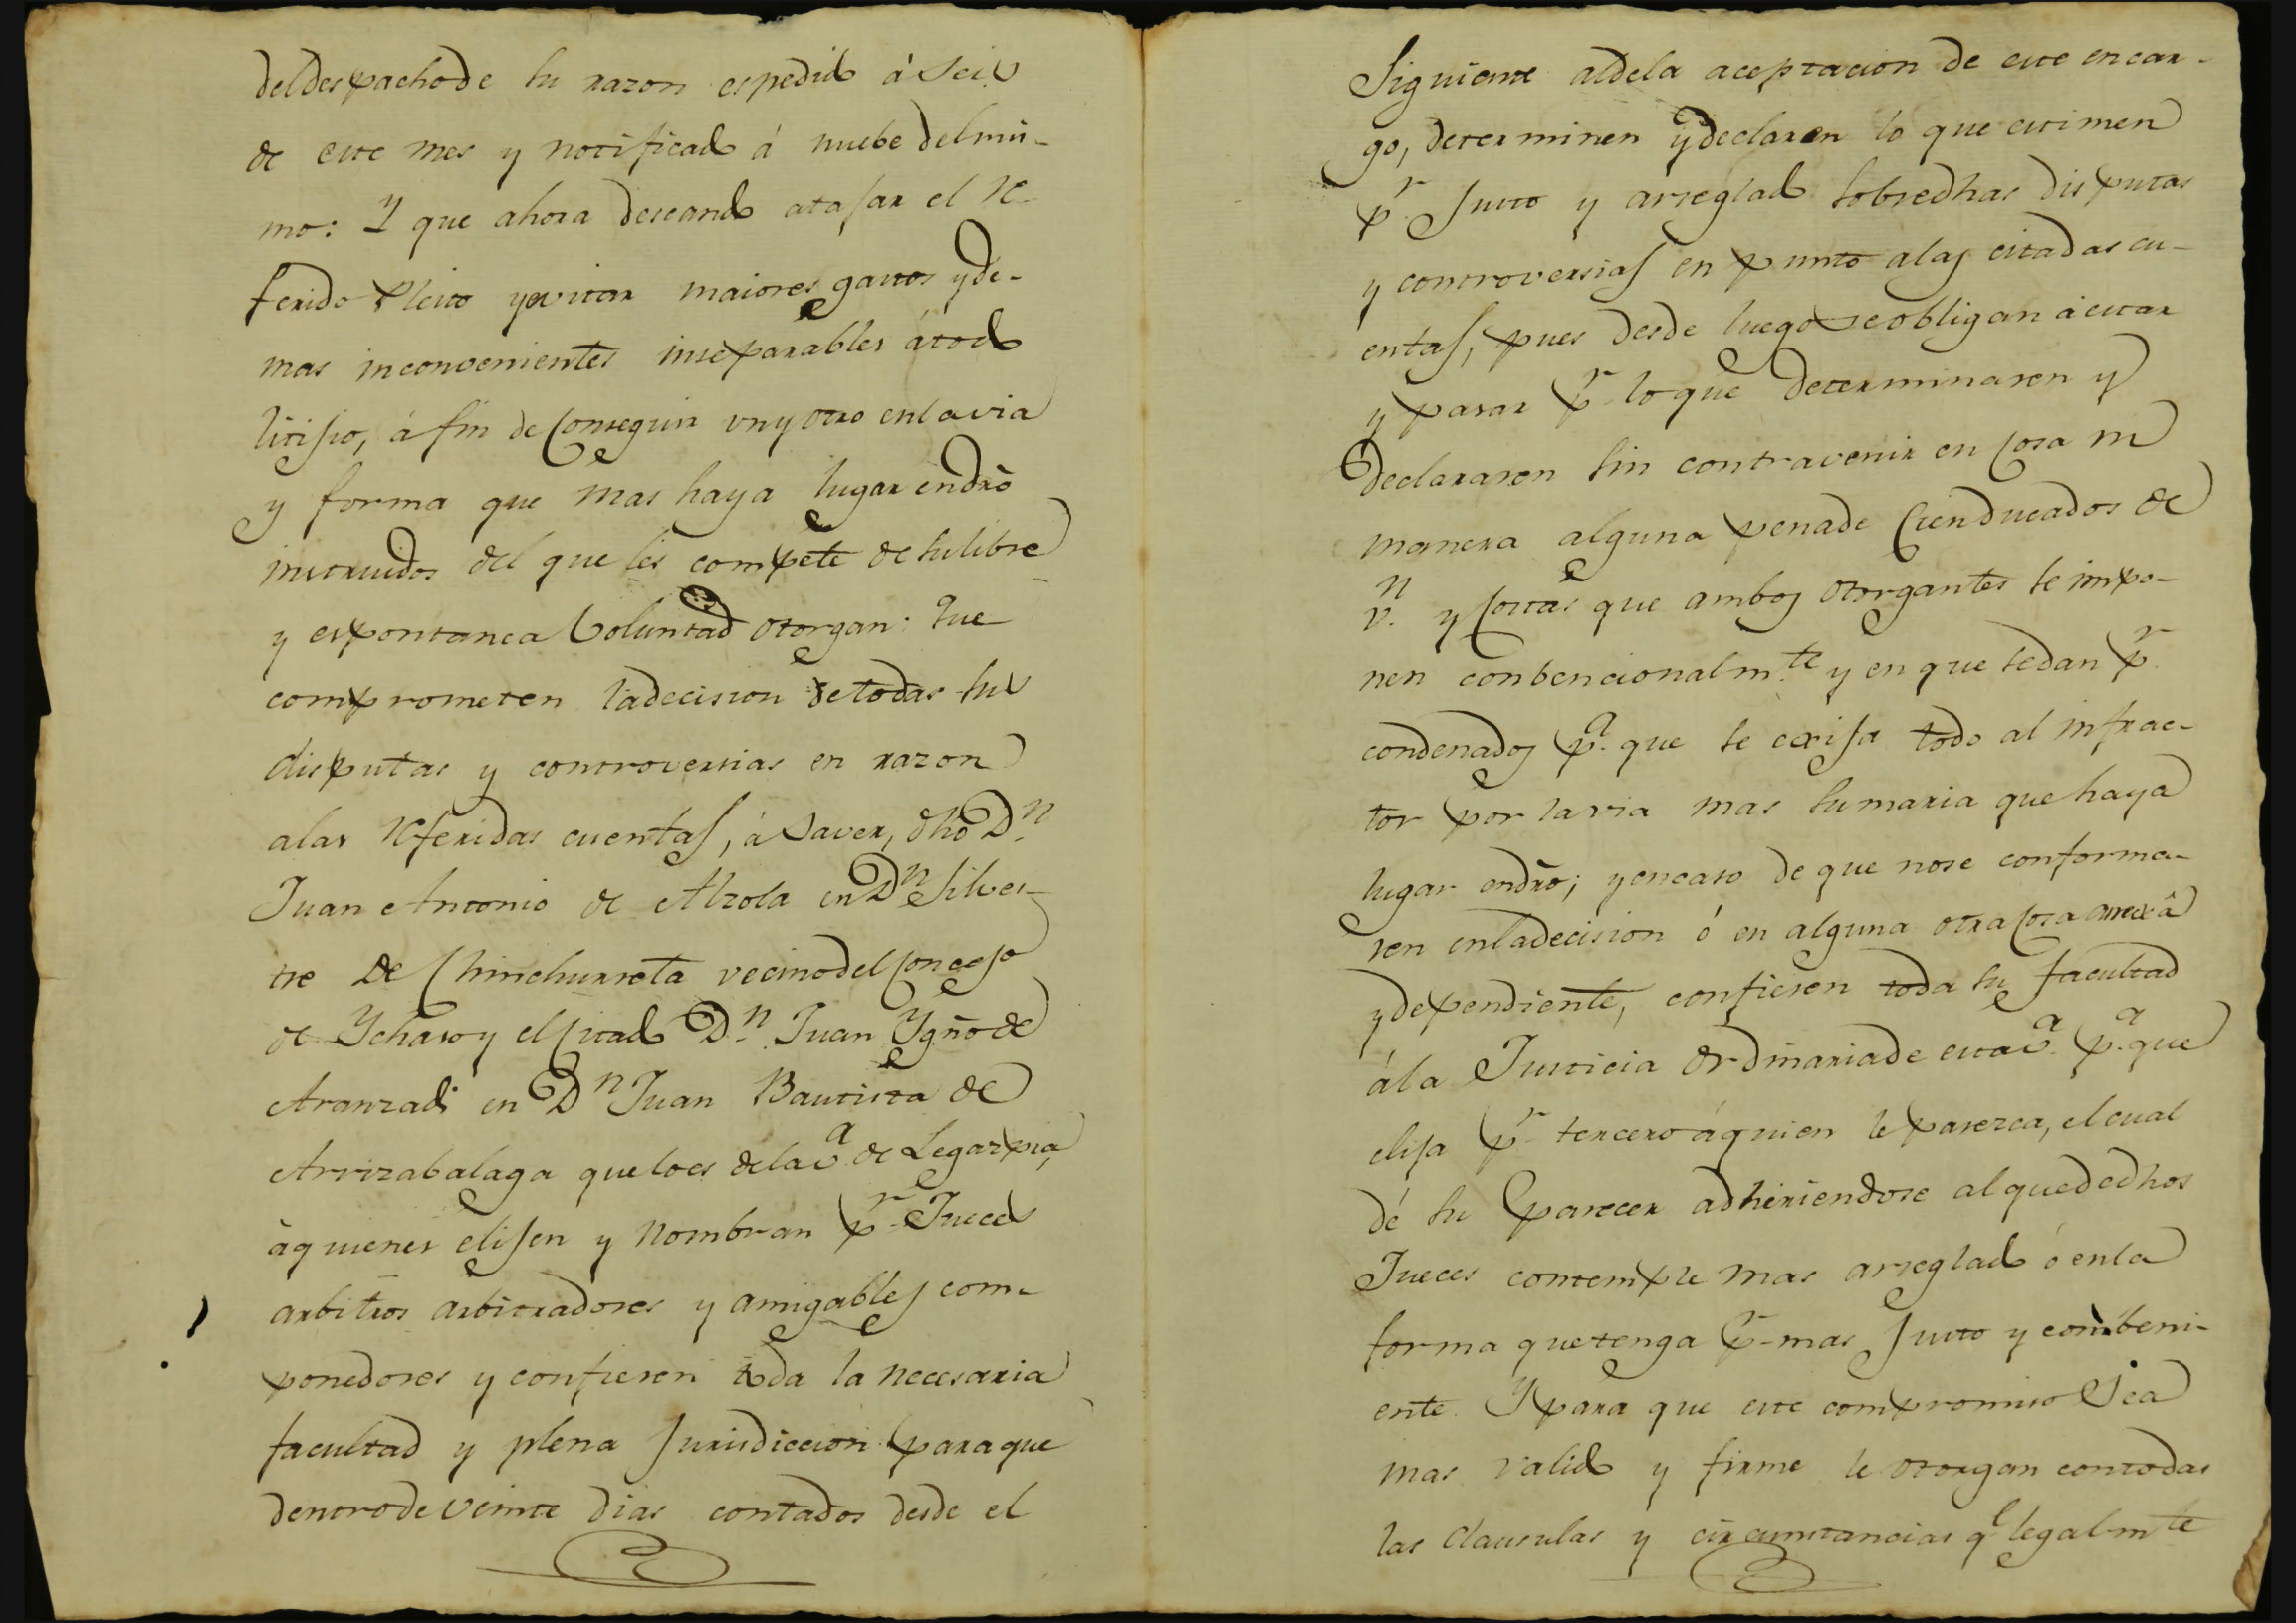 del despacho de su razon espedido á seis
de este mes y notificado á nuebe del mis-
mo: Y que ahora deseando atajar el re-
ferido Pleito y evitar maiores gastos y de-
mas inconvenientes inseparables á todo
litijio, á fin de conseguir un y otro en la via
y forma que mas haya lugar en dro
instruidos del que les compete de su libre
y espontanea Voluntad otorgan: Que
comprometen la decision de todas sus
disputas y controversias en razon
a las referidas cuentas, á saver, dho Dn.
Juan Antonio de Alzola en Dn Silves-
tre de Chinchurreta vecino del concejo
de Ychaso y el citado Dn. Juan Ygño de
Aranzadi en Dn Juan Bautista de
Arrizabalaga que lo es de la va. de Legazpia,
á quienes elijen y nombran pr. Jueces
arbitros arbitradores y amigables com-
ponedores y confieren toda la necesaria
facultad y plena Jurisdiccion para que
dentro de veinte dias contados desde el
Siguiente al de la aceptacion de este encar-
go, determinen y declaren lo que estimen
pr. Justo y arreglado sobre dhas disputas
y controversias en punto a las citadas cu-
entas, pues desde luego se obligan á estar
y pasar pr. lo que determinaren y
declararen sin contravenir en cosa ni
manera alguna pena de Cien ducados de
vn. y costas que ambos otorgantes se impo-
nen conbencionalmte. y en que se dan pr.
condenados pa. que se exija todo al infrac-
tor por la via mas sumaria que haya
lugar en dro; y en caso de que no se conforma-
ren en la decision ó en alguna otra cosa anexâ
y dependiente, confieren toda su facultad
á la Justicia ordinaria de esta va. pa. que
elija pr. tercero á quien le parezca, el cual
dé su parecer adhiriendose al que de dhos
Jueces contemple mas arreglado ó en la
forma que tenga pr. mas Justo y combeni-
ente. Y para que este compromiso sea
mas valido y firme le otorgan con todas
las clausulas y circunstancias qe legalmte